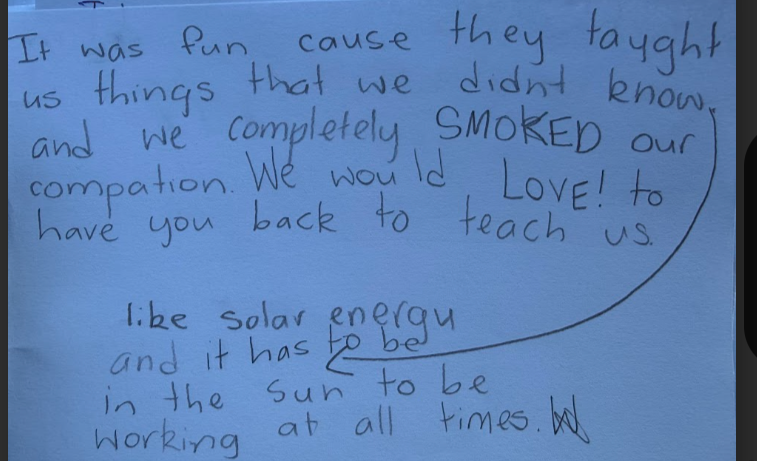 It was fun cause they tayght
us things that we didnt know,
and we completely SMOKED our
compation. We would LOVE! to
have you back to teach us.
like solar energy
and it has to be
in the sun to be
working at all times.